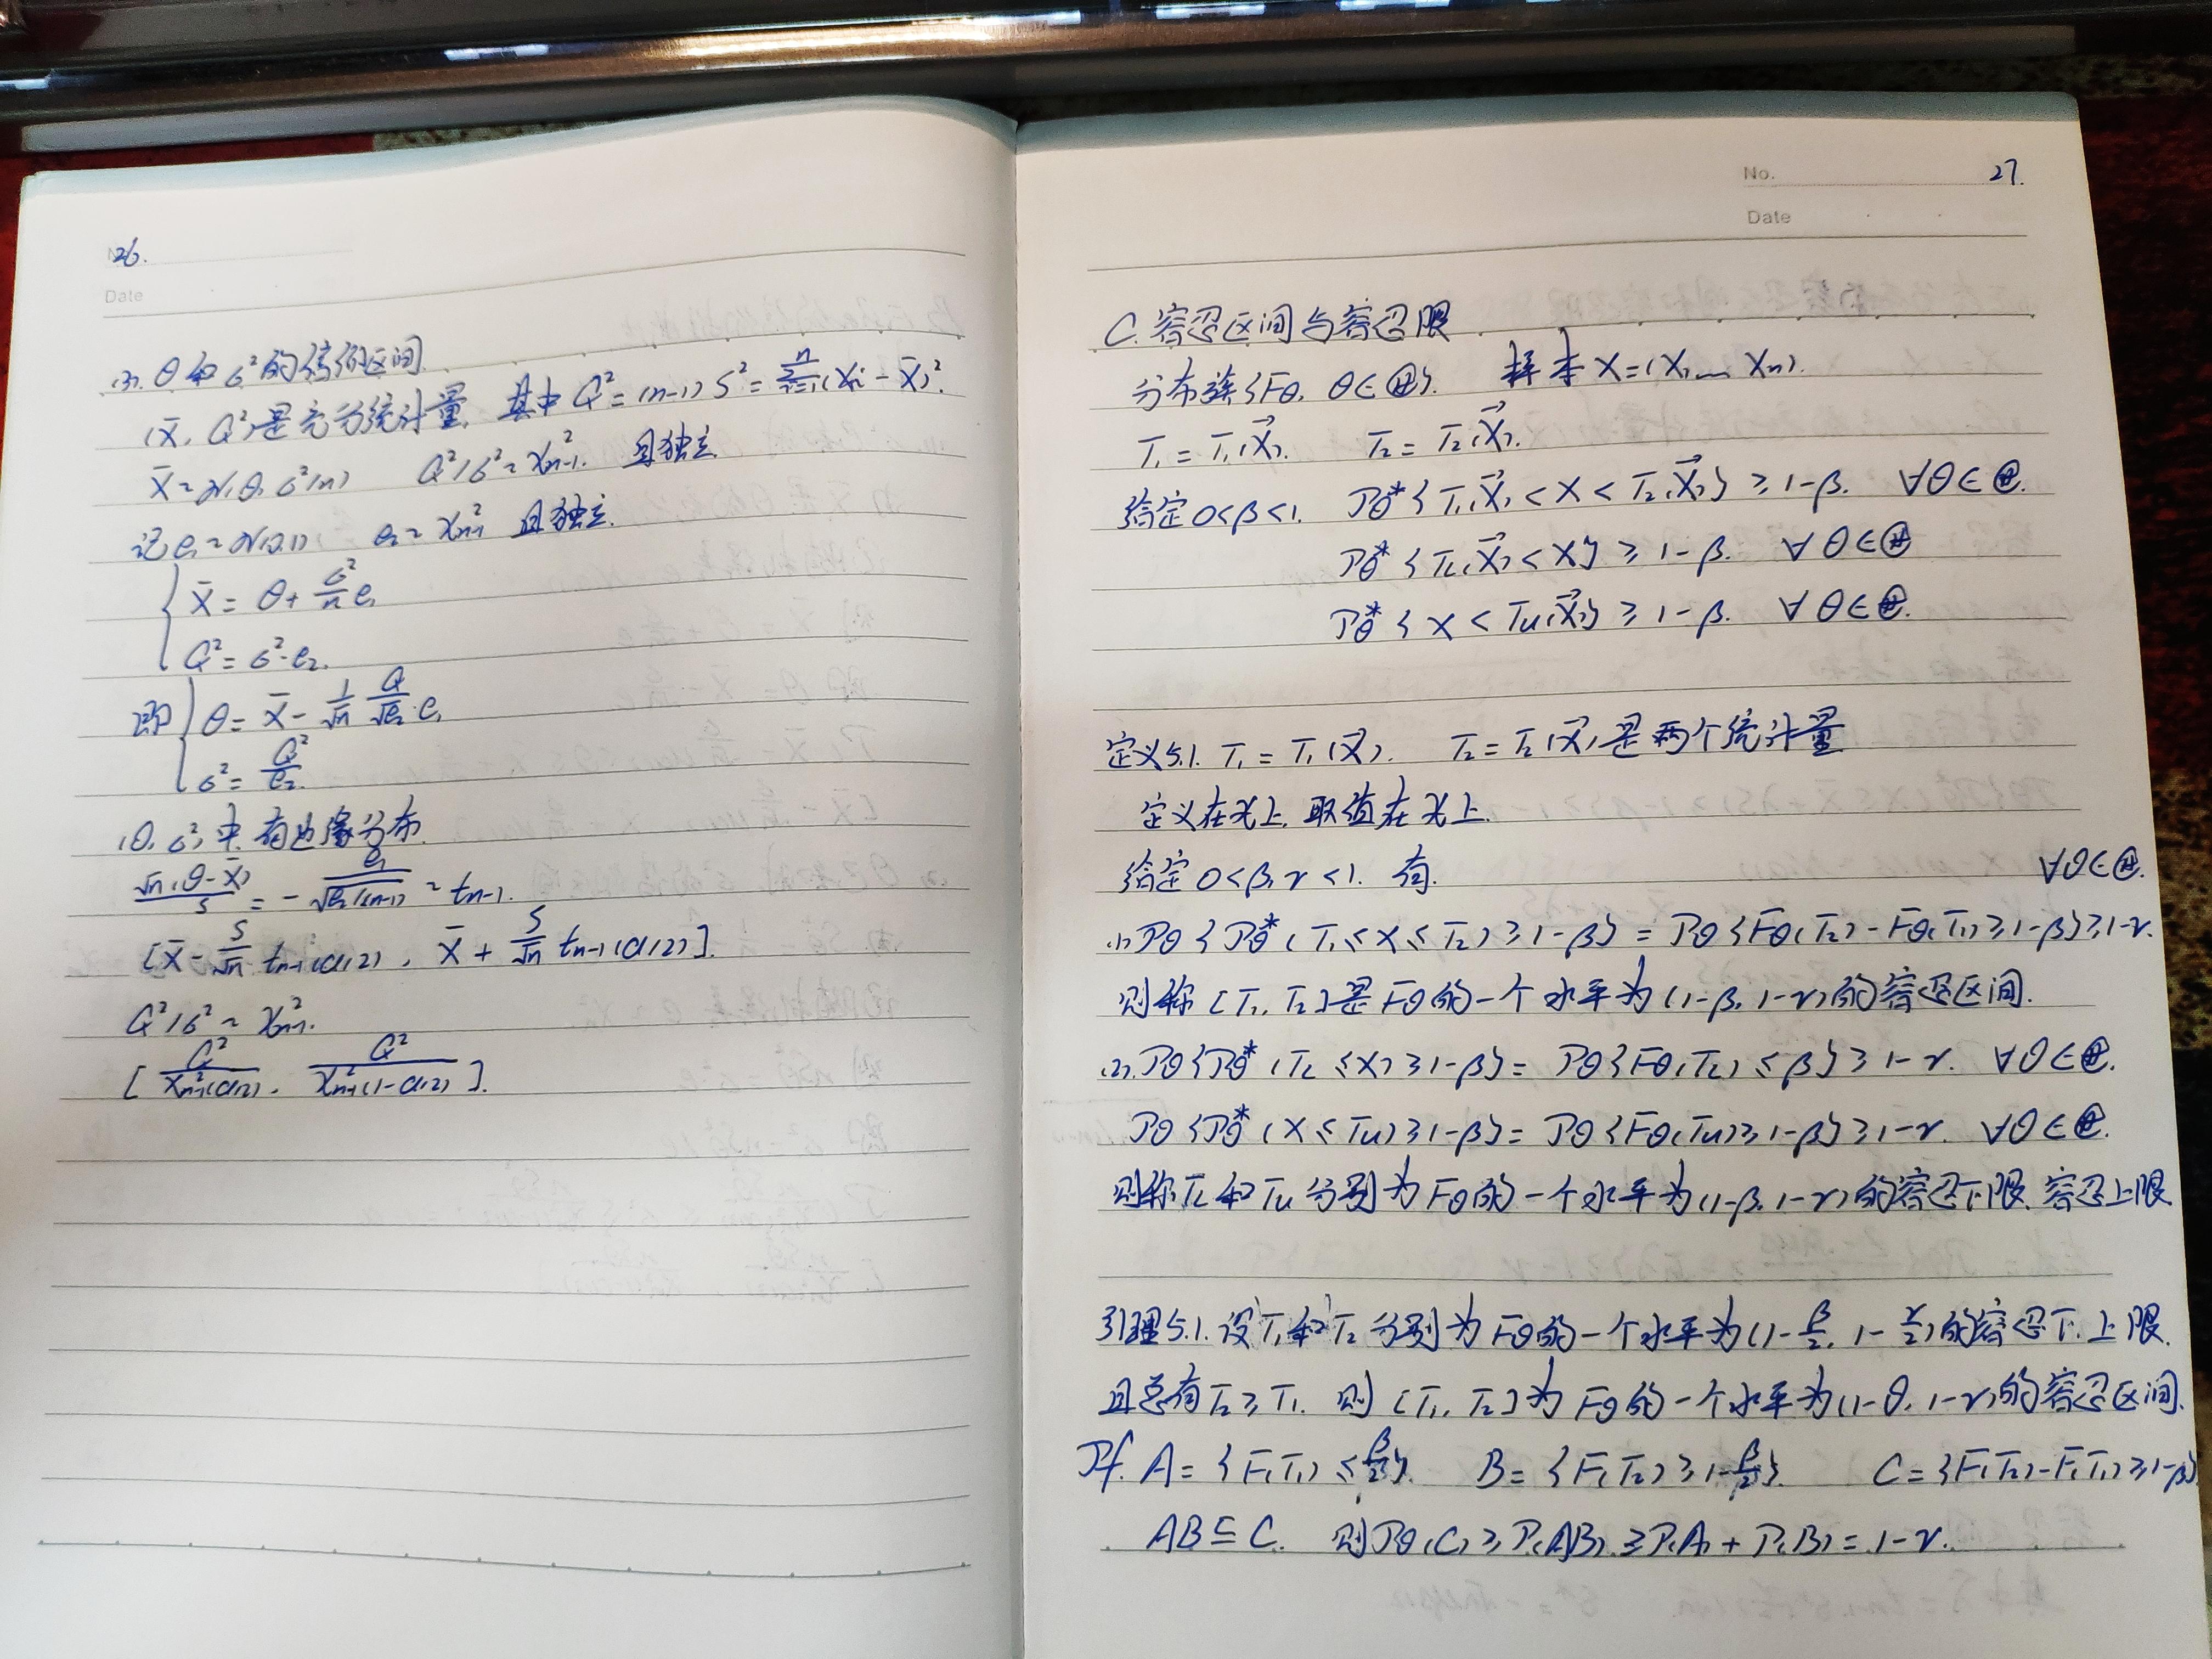 26.
Date
(3). θ和σ²的信仰区间.
(X̄, Q²)是充分统计量, 其中 Q² = (n-1)S² = Σⁿᵢ₌₁(Xᵢ - X̄)².
X̄ ~ N(θ, σ²/n) Q²/σ² ~ χ²ₙ₋₁. 且独立
记 e₁ ~ N(0,1) e₂ ~ χ²ₙ₋₁ 且独立.
{ X̄ = θ + σ²/n e₁
Q² = σ²·e₂.
即 { θ = X̄ - 1/√n Q/√e₂ e₁
σ² = Q²/e₂.
(θ, σ²)中, 有边缘分布.
√n(θ-X̄)/S = - e₁/√(e₂/(n-1)) ~ tₙ₋₁.
[X̄ - S/√n tₙ₋₁(α/2), X̄ + S/√n tₙ₋₁(α/2)].
Q²/σ² ~ χ²ₙ₋₁.
[ Q²/χ²ₙ₋₁(α/2), Q²/χ²ₙ₋₁(1-α/2) ].
No. 27.
Date
C. 容忍区间与容忍限
分布族{Fθ, θ∈Θ}. 样本X=(X₁ … Xₙ).
T₁ = T₁(X⃗). T₂ = T₂(X⃗).
给定0<β<1. Pθ*{T₁(X⃗) < X < T₂(X⃗)} ≥ 1-β. ∀θ∈Θ.
Pθ*{T_L(X⃗) < X} ≥ 1-β. ∀θ∈Θ
Pθ*{X < T_U(X⃗)} ≥ 1-β. ∀θ∈Θ.
定义5.1. T₁ = T₁(X⃗). T₂ = T₂(X⃗)是两个统计量
定义在𝒳上, 取值在𝒳上.
给定0<β,γ<1. 有. ∀θ∈Θ.
(1) Pθ{Pθ*(T₁≤X≤T₂)≥1-β} = Pθ{Fθ(T₂)-Fθ(T₁)≥1-β}≥1-γ.
则称[T₁, T₂]是Fθ的一个水平为(1-β, 1-γ)的容忍区间.
(2). Pθ{Pθ*(T_L≤X)≥1-β} = Pθ{Fθ(T_L)≤β}≥1-γ. ∀θ∈Θ.
Pθ{Pθ*(X≤T_U)≥1-β} = Pθ{Fθ(T_U)≥1-β}≥1-γ. ∀θ∈Θ.
则称T_L和T_U分别为Fθ的一个水平为(1-β, 1-γ)的容忍下限, 容忍上限
引理5.1. 设T₁和T₂分别为Fθ的一个水平为(1-β/2, 1-γ/2)的容忍下.上限.
且总有T₂≥T₁. 则[T₁, T₂]为Fθ的一个水平为(1-θ, 1-γ)的容忍区间.
Pf. A = {F(T₁)≤β/2}. B = {F(T₂)≥1-β/2}. C = {F(T₂)-F(T₁)≥1-β}
AB⊆C. 则Pθ(C)≥P(AB)≥P(A)+P(B) = 1-γ.